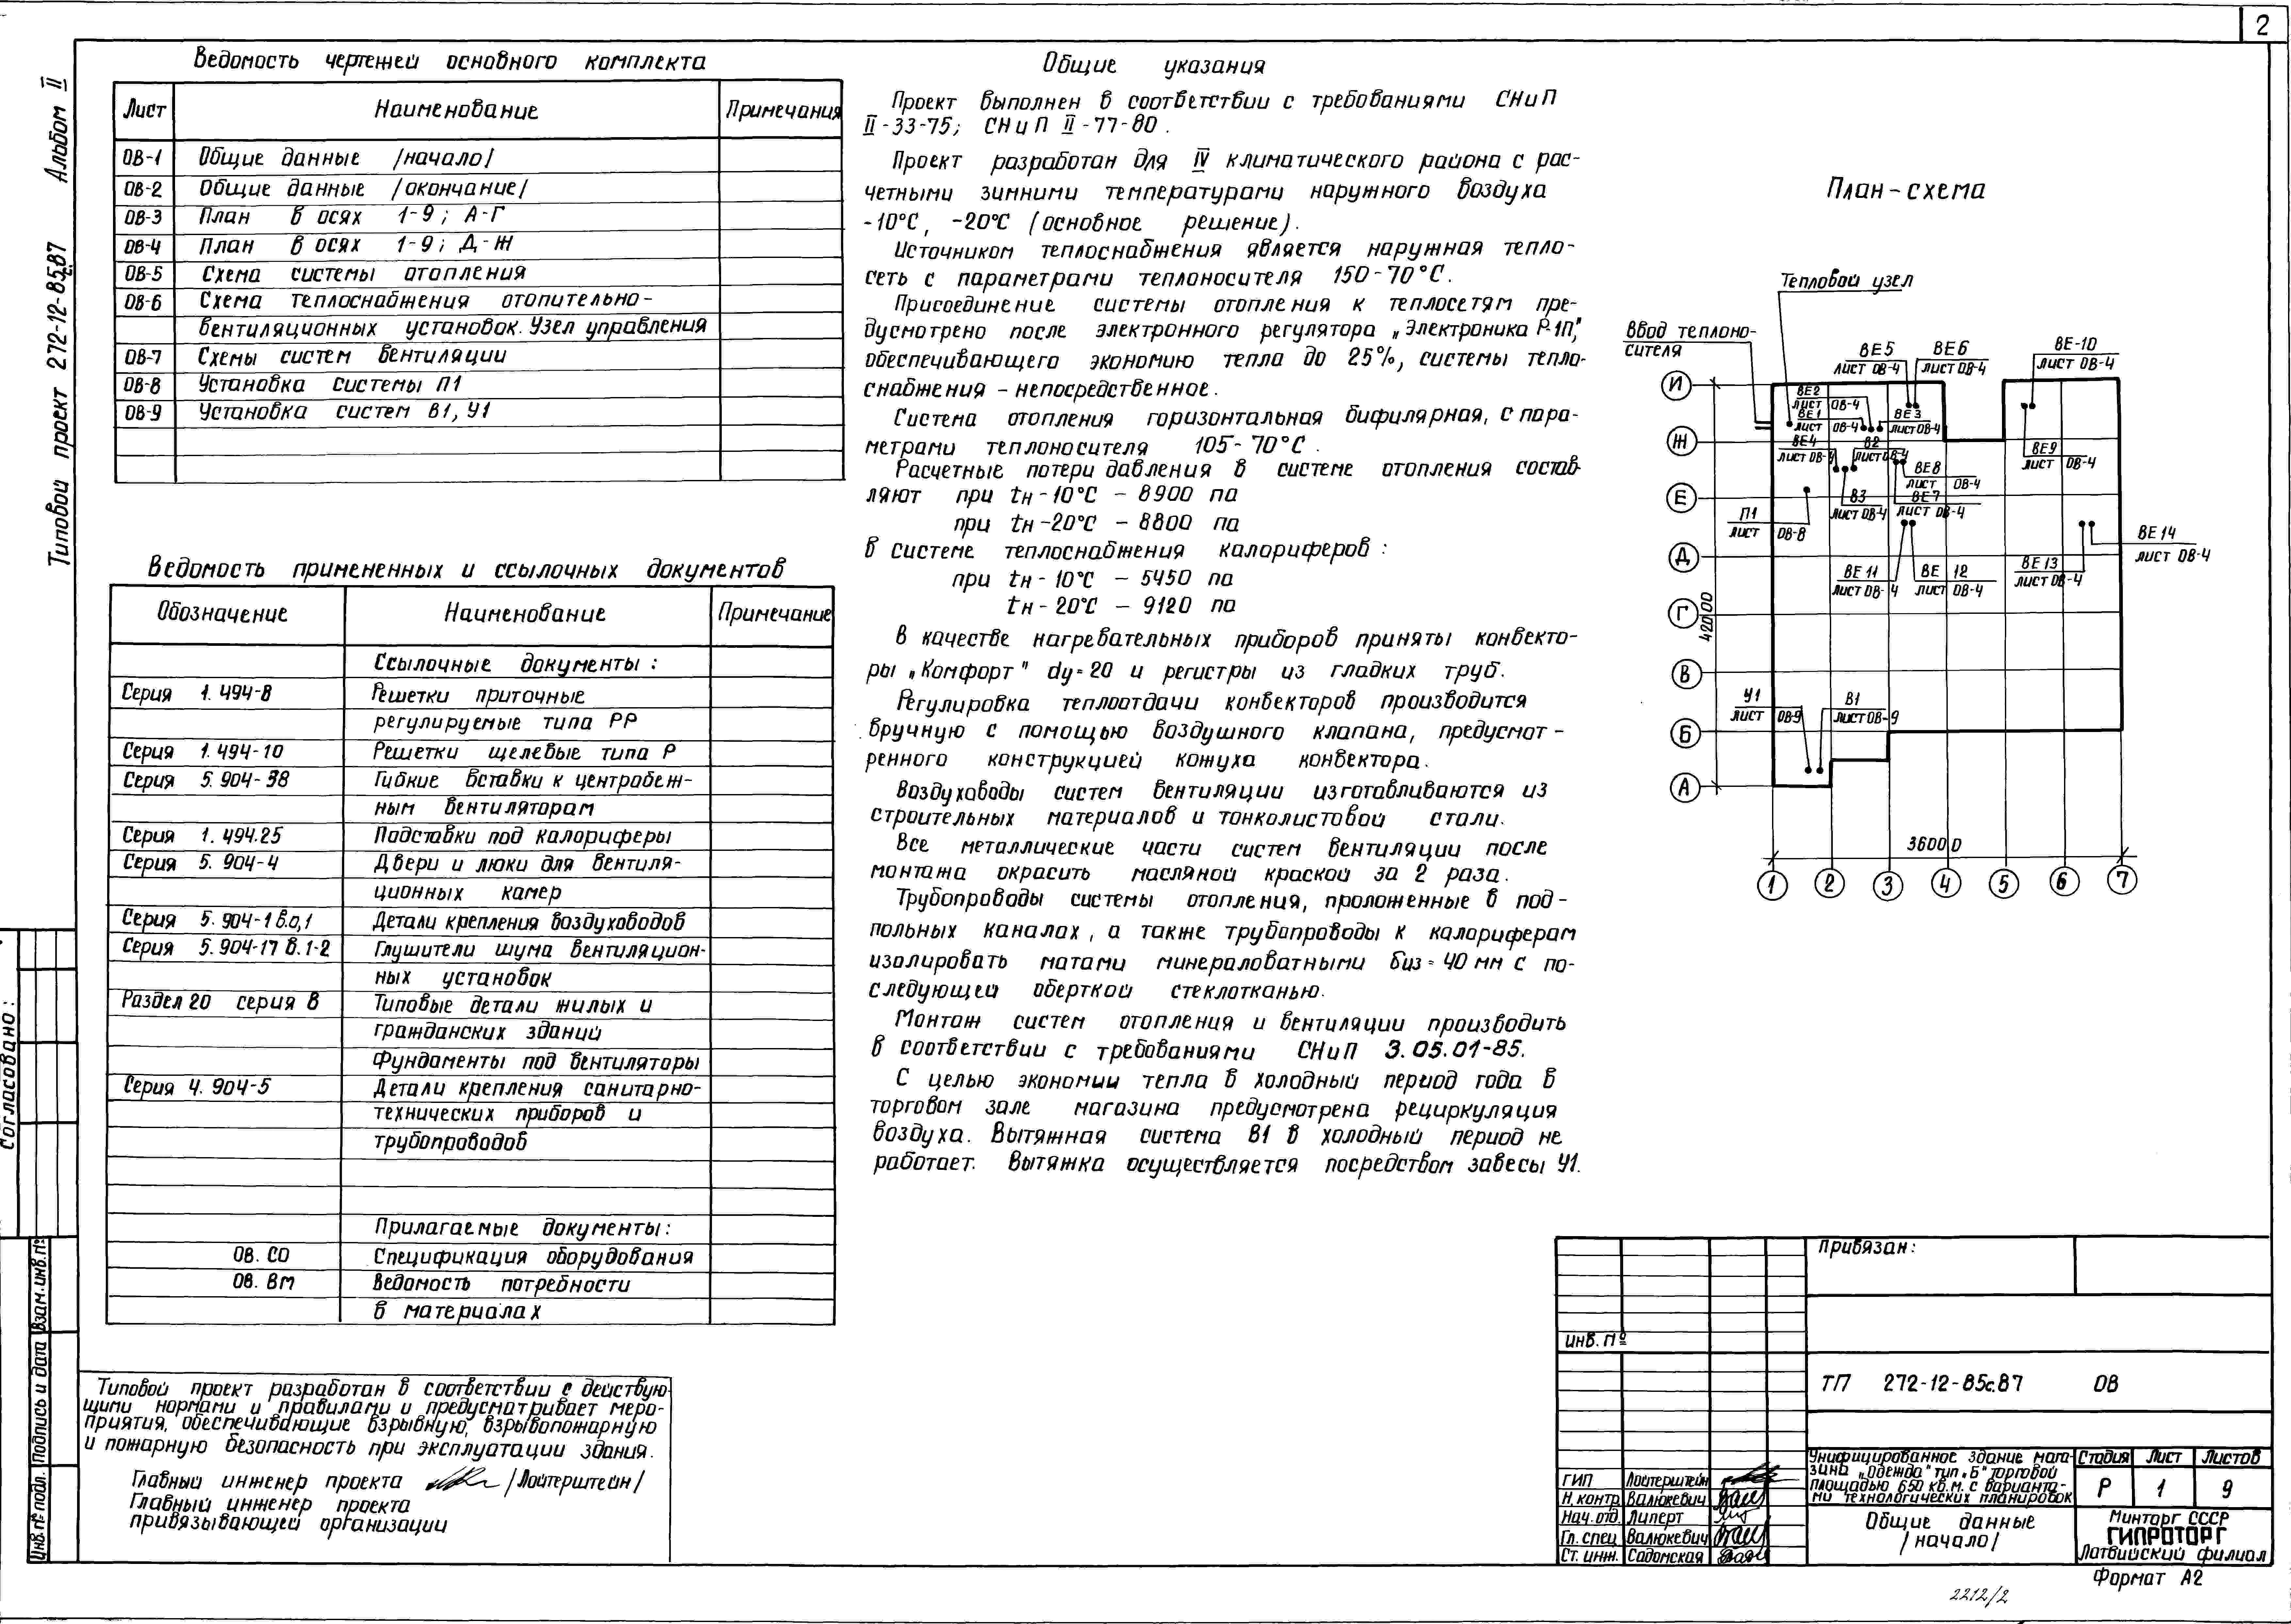 2
Альбом II
Типовой проект 272-12-85.87
Согласовано:
Взам. инв. №
Подпись и дата
Инв. № подл.
Ведомость чертежей основного комплекта
Лист Наименование Примечания
ОВ-1 Общие данные /начало/
ОВ-2 Общие данные /окончание/
ОВ-3 План в осях 1-9; А-Г
ОВ-4 План в осях 1-9; Д-Ж
ОВ-5 Схема системы отопления
ОВ-6 Схема теплоснабжения отопительно-
вентиляционных установок. Узел управления
ОВ-7 Схемы систем вентиляции
ОВ-8 Установка системы П1
ОВ-9 Установка систем В1, У1
Ведомость примененных и ссылочных документов
Обозначение Наименование Примечание
Ссылочные документы:
Серия 1.494-8 Решетки приточные
регулируемые типа РР
Серия 1.494-10 Решетки щелевые типа Р
Серия 5.904-38 Гибкие вставки к центробеж-
ным вентиляторам
Серия 1.494.25 Подставки под калориферы
Серия 5.904-4 Двери и люки для вентиля-
ционных камер
Серия 5.904-1 в.0,1 Детали крепления воздуховодов
Серия 5.904-17 в.1-2 Глушители шума вентиляцион-
ных установок
Раздел 20 серия В Типовые детали жилых и
гражданских зданий
Фундаменты под вентиляторы
Серия 4.904-5 Детали крепления санитарно-
технических приборов и
трубопроводов
Прилагаемые документы:
ОВ.СО Спецификация оборудования
ОВ.ВМ Ведомость потребности
в материалах
Типовой проект разработан в соответствии с действую-
щими нормами и правилами и предусматривает меро-
приятия, обеспечивающие взрывную, взрывопожарную
и пожарную безопасность при эксплуатации здания.
Главный инженер проекта /Лойтерштейн/
Главный инженер проекта
привязывающей организации
Общие указания
Проект выполнен в соответствии с требованиями СНиП
II-33-75; СНиП II-77-80.
Проект разработан для IV климатического района с рас-
четными зимними температурами наружного воздуха
-10°С, -20°С (основное решение).
Источником теплоснабжения является наружная тепло-
сеть с параметрами теплоносителя 150-70°С.
Присоединение системы отопления к теплосетям пре-
дусмотрено после электронного регулятора „Электроника Р-1П",
обеспечивающего экономию тепла до 25%, системы тепло-
снабжения - непосредственное.
Система отопления горизонтальная бифилярная, с пара-
метрами теплоносителя 105-70°С.
Расчетные потери давления в системе отопления состав-
ляют при tн-10°С - 8900 па
при tн-20°С - 8800 па
в системе теплоснабжения калориферов:
при tн-10°С - 5450 па
tн-20°С - 9120 па
В качестве нагревательных приборов приняты конвекто-
ры „Комфорт" dу=20 и регистры из гладких труб.
Регулировка теплоотдачи конвекторов производится
вручную с помощью воздушного клапана, предусмот-
ренного конструкцией кожуха конвектора.
Воздуховоды систем вентиляции изготавливаются из
строительных материалов и тонколистовой стали.
Все металлические части систем вентиляции после
монтажа окрасить масляной краской за 2 раза.
Трубопроводы системы отопления, проложенные в под-
польных каналах, а также трубопроводы к калориферам
изолировать матами минераловатными биз=40 мм с по-
следующей оберткой стеклотканью.
Монтаж систем отопления и вентиляции производить
в соответствии с требованиями СНиП 3.05.01-85.
С целью экономии тепла в холодный период года в
торговом зале магазина предусмотрена рециркуляция
воздуха. Вытяжная система В1 в холодный период не
работает. Вытяжка осуществляется посредством завесы У1.
План-схема
Тепловой узел
Ввод теплоно-
сителя
ВЕ5 лист ОВ-4
ВЕ6 лист ОВ-4
ВЕ-10 лист ОВ-4
ВЕ2 лист ОВ-4
ВЕ1 лист ОВ-4
ВЕ3 лист ОВ-4
ВЕ4 лист ОВ-4
В2 лист ОВ-4
ВЕ8 лист ОВ-4
ВЕ9 лист ОВ-4
В3 лист ОВ-4
ВЕ7 лист ОВ-4
П1 лист ОВ-8
ВЕ11 лист ОВ-4
ВЕ12 лист ОВ-4
ВЕ13 лист ОВ-4
ВЕ14 лист ОВ-4
У1 лист ОВ-9
В1 лист ОВ-9
И
Ж
Е
Д
Г
В
Б
А
42000
36000
1 2 3 4 5 6 7
Привязан:
Инв. №
ТП 272-12-85с.87 ОВ
Унифицированное здание мага-
зина „Одежда" тип „Б" торговой
площадью 650 кв.м. с варианта-
ми технологических планировок
Стадия Лист Листов
Р 1 9
ГИП Лойтерштейн
Н.контр. Валюкевич
Нач.отд. Липерт
Гл.спец. Валюкевич
Ст. инж. Садомская
Общие данные
/начало/
Минторг СССР
ГИПРОТОРГ
Латвийский филиал
Формат А2
2212/2